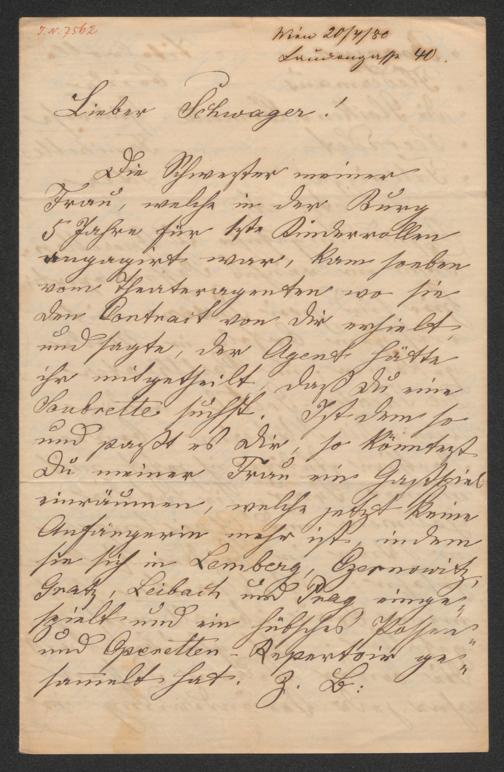 J.N. 7562
Wien 20/4/80
Laudongasse 40.
Lieber Schwager!
Die Schwester meiner
Frau, welche in der Burg
5 Jahre für 1te Kinderrollen
engagirt war, kam soeben
vom Theateragenten wo sie
den Contract von Dir erhielt
und sagte, der Agent hätte
ihr mitgetheilt, daß Du eine
Soubrette suchst. Ist dem so
und paßt es Dir, so könntest
Du meiner Frau ein Gastspiel
einräumen, welche jetzt keine
Anfängerin mehr ist, indem
sie sich in Lemberg, Czernowitz,
Gratz, Leibach und Prag einge-
spielt und ein hübsches Possen-
und Operetten-Repertoir ge-
sammelt hat. Z. B: